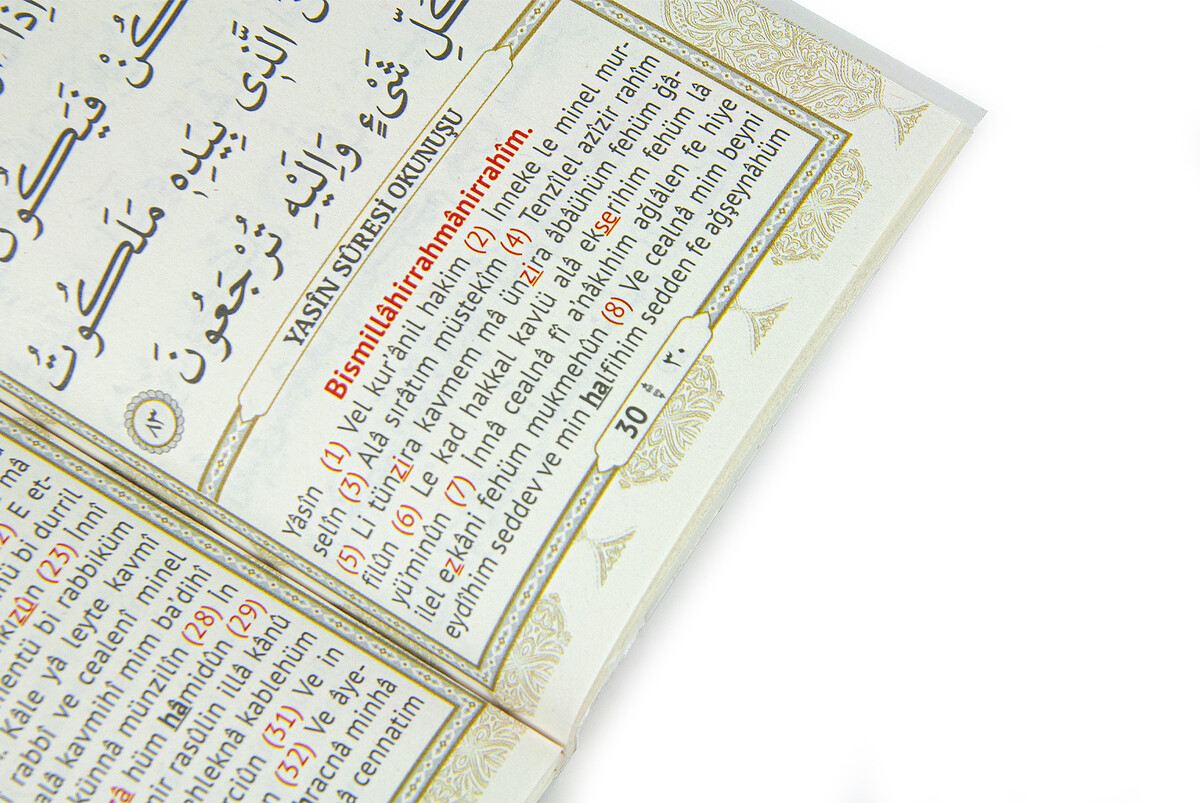 اِذَا
كُنْ فَيَكُونُ
الَّذِى بِيَدِهِ مَلَكُوتُ
كُلِّ شَىْءٍ وَاِلَيْهِ تُرْجَعُونَ
٨٣
YASÎN SÛRESİ OKUNUŞU
Bismillâhirrahmânirrahîm.
Yâsîn (1) Vel kur’ânil hakim (2) İnneke le minel mur-
selîn (3) Alâ sırâtım müstekîm (4) Tenzîlel azîzir rahîm
(5) Li tünzira kavmem mâ ünzira âbâühüm fehüm ğâ-
filûn (6) Le kad hakkal kavlü alâ ekserihim fehüm lâ
yü’minûn (7) İnnâ cealnâ fî a’nâkıhim ağlâlen fe hiye
ilel ezkâni fehüm mukmehûn (8) Ve cealnâ mim beyni
eydîhim seddev ve min halfihim sedden fe ağşeynâhüm
30 ٣٠
mâ
E et-
bi durril
kızûn (23) İnnî
mentü bi rabbiküm
Kâle yâ leyte kavmî
rabbî ve cealenî minel
alâ kavmihî mim ba’dihî
künnâ münzilîn (28) İn
hüm hâmidûn (29)
rasûlin illâ kânû
ehleknâ kablehüm
rciûn (31) Ve in
(32) Ve âye-
hracnâ minhâ
cennatim